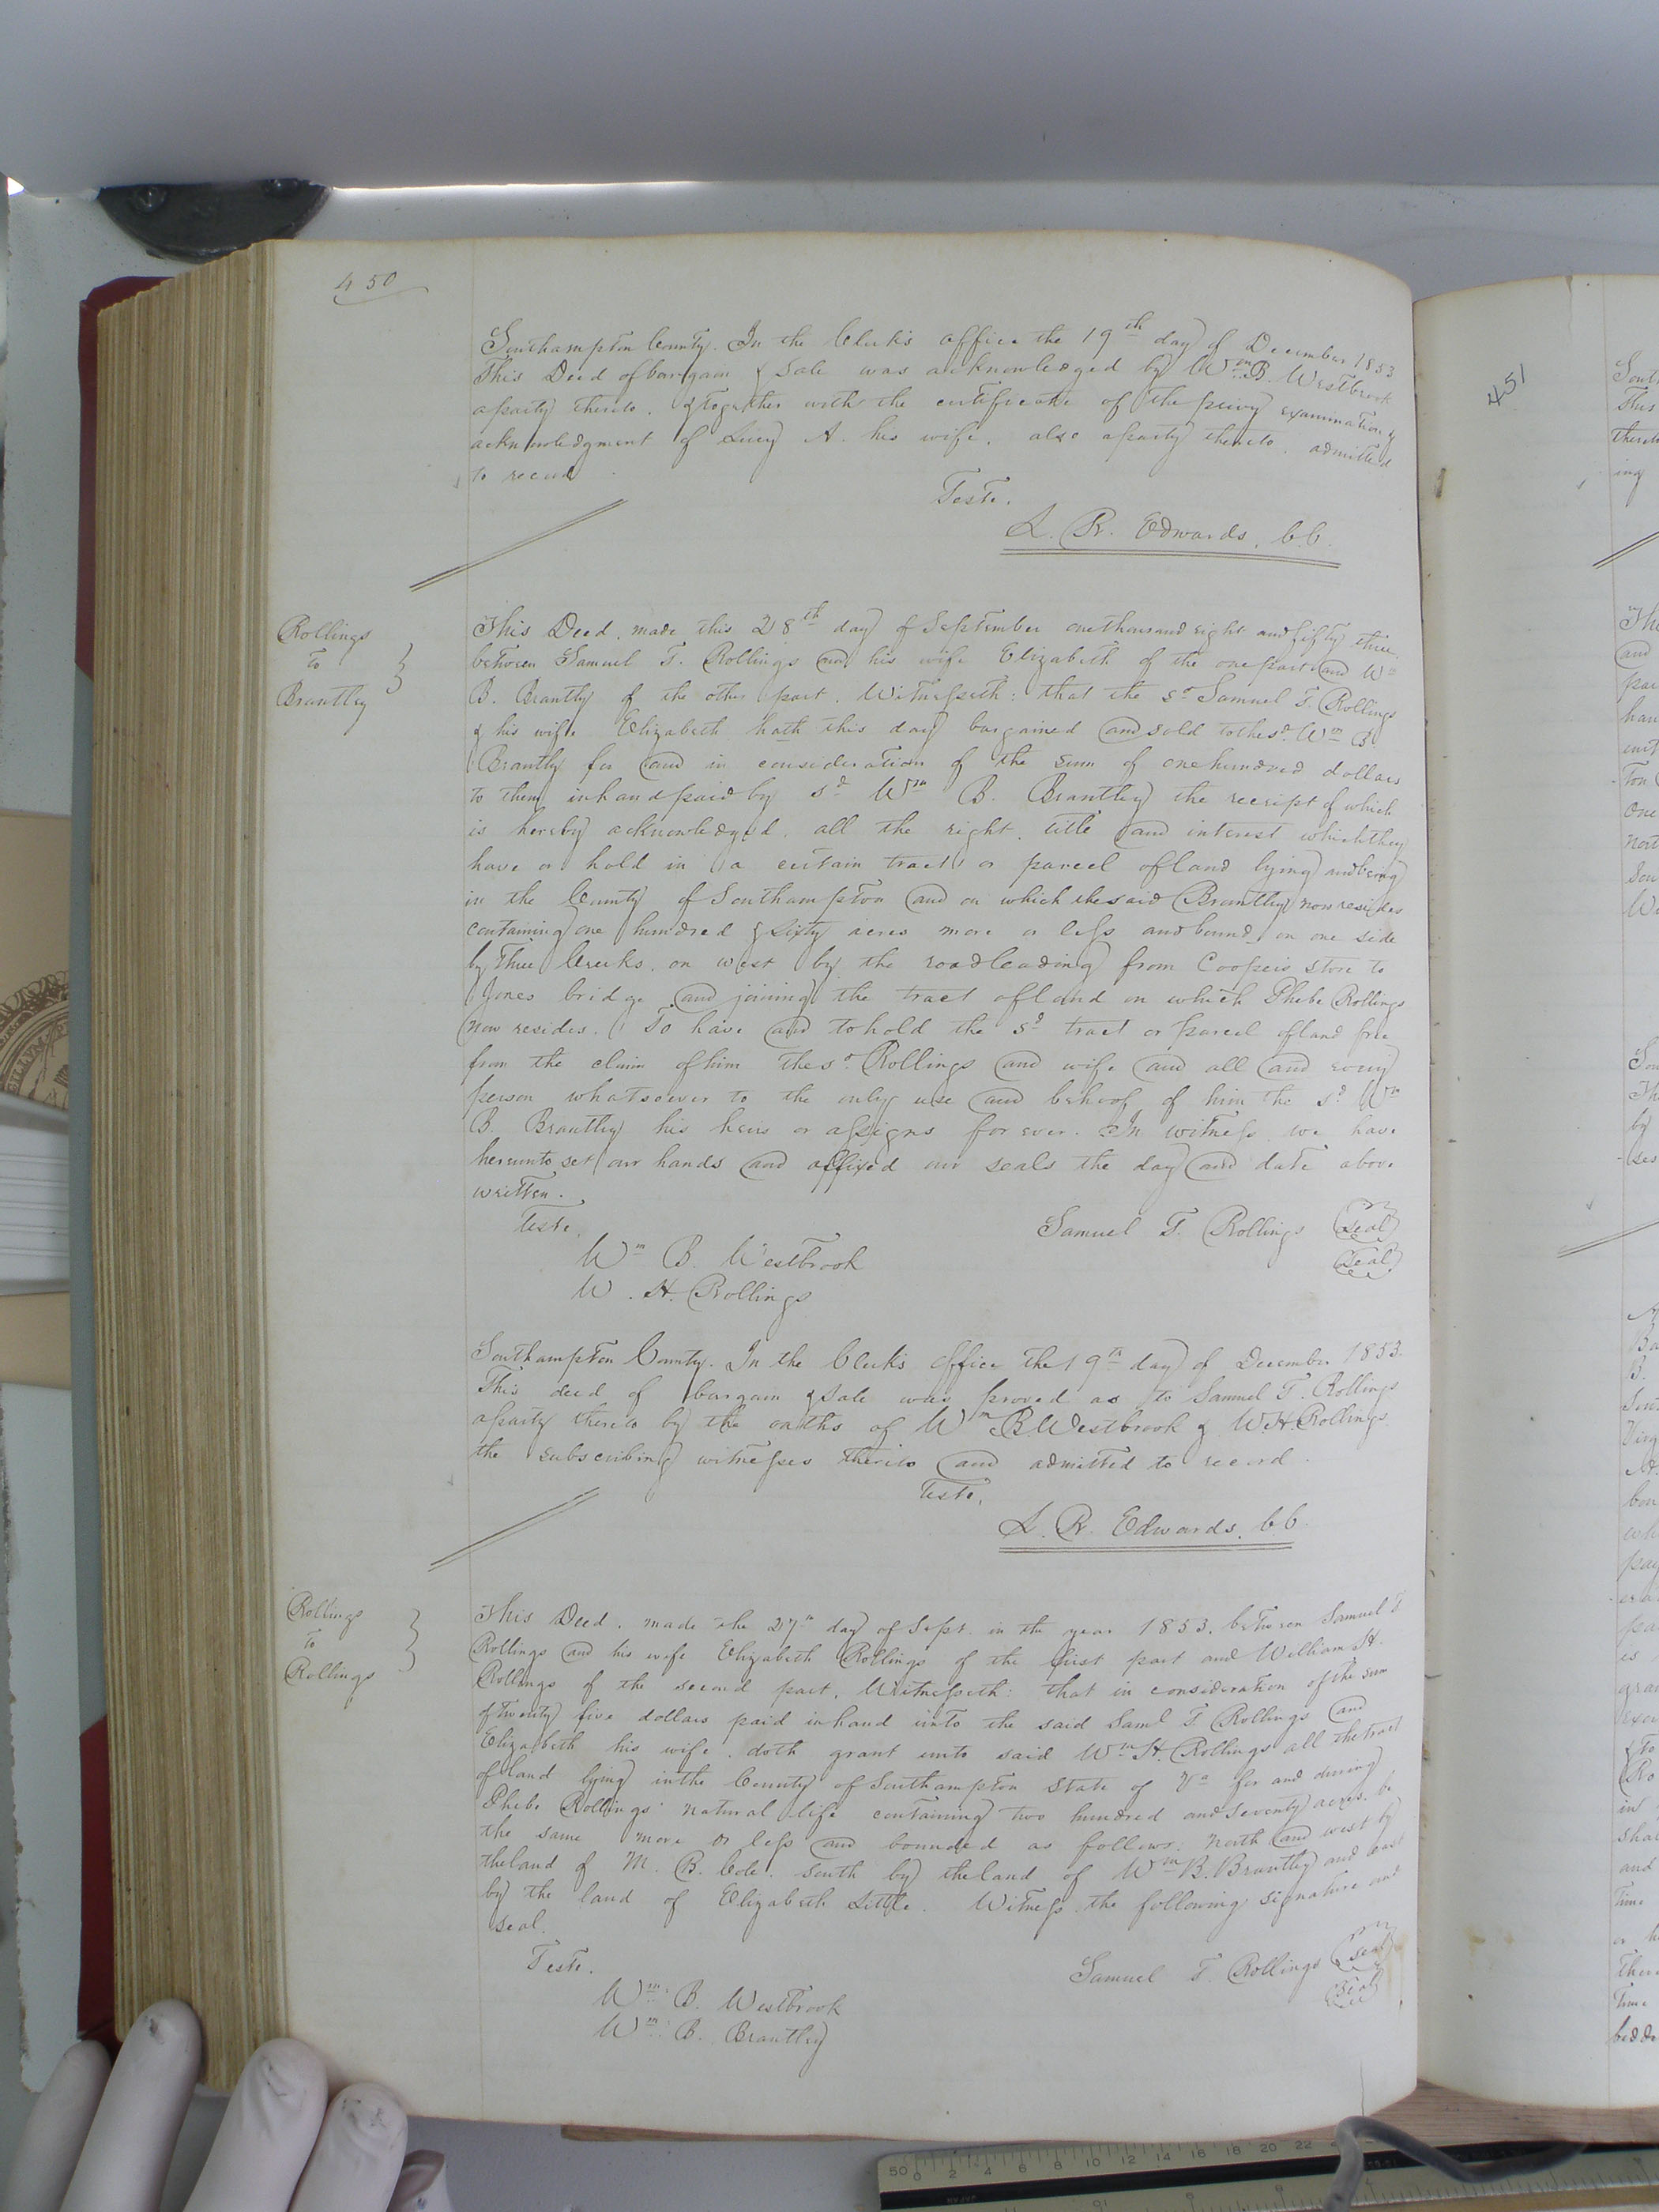 450
Southampton County. In the Clerk's office the 19th day of December 1853
This Deed of bargain & Sale was acknowledged by Wm B. Westbrook
a party thereto, & together with the certificate of the privy examination &
acknowledgment of Lucy A. his wife, also a party thereto, admitted
to record
Teste.
L. R. Edwards, C.C.
Rollings
to
Brantley
This Deed, made this 28th day of September one thousand eight and fifty three
between Samuel T. Rollings and his wife Elizabeth of the one part and Wm
B. Brantly of the other part. Witnesseth: that the sd Samuel T. Rollings
& his wife Elizabeth hath this day bargained and sold to the sd Wm B.
Brantly for and in consideration of the sum of one hundred dollars
to them in hand paid by sd Wm B. Brantley the receipt of which
is hereby acknowledged, all the right, title and interest which they
have or hold in a certain tract or parcel of land lying and being
in the County of Southampton and on which the said Brantley now resides
containing one hundred & sixty acres more or less and bound on one side
by Three Creeks, on west by the road leading from Cooper's store to
Jones bridge, and joining the tract of land on which Phebe Rollings
now resides. To have and to hold the sd tract or parcel of land free
from the claim of him the sd Rollings and wife and all and every
person whatsoever to the only use and behoof of him the sd Wm
B. Brantley his heirs or assigns forever. In witness we have
hereunto set our hands and affixed our seals the day and date above
written.
Teste.
Samuel T. Rollings (Seal)
Wm B. Westbrook (Seal)
W. H. Rollings
Southampton County. In the Clerk's Office the 19th day of December 1853.
This deed of bargain & Sale was proved as to Samuel T. Rollings
a party thereto by the oaths of Wm B. Westbrook & W. H. Rollings
the subscribing witnesses thereto and admitted to record.
Teste,
L. R. Edwards, C.C.
Rollings
to
Rollings
This Deed, made the 27th day of Sept. in the year 1853, between Samuel T
Rollings and his wife Elizabeth Rollings of the first part and William H.
Rollings of the second part, Witnesseth: that in consideration of the sum
of twenty five dollars paid in hand unto the said Saml T Rollings and
Elizabeth his wife, doth grant unto said Wm H. Rollings all the tract
of land lying in the County of Southampton State of Va for and during
Phebe Rollings' natural life containing two hundred and seventy acres, be
the same more or less and bounded as follows: north and west by
the land of M. B. Cole, south by the land of Wm B. Brantley and east
by the land of Elizabeth Little. Witness the following signature and
seal.
Teste.
Samuel T. Rollings (seal)
Wm B. Westbrook (seal)
Wm B. Brantley
451